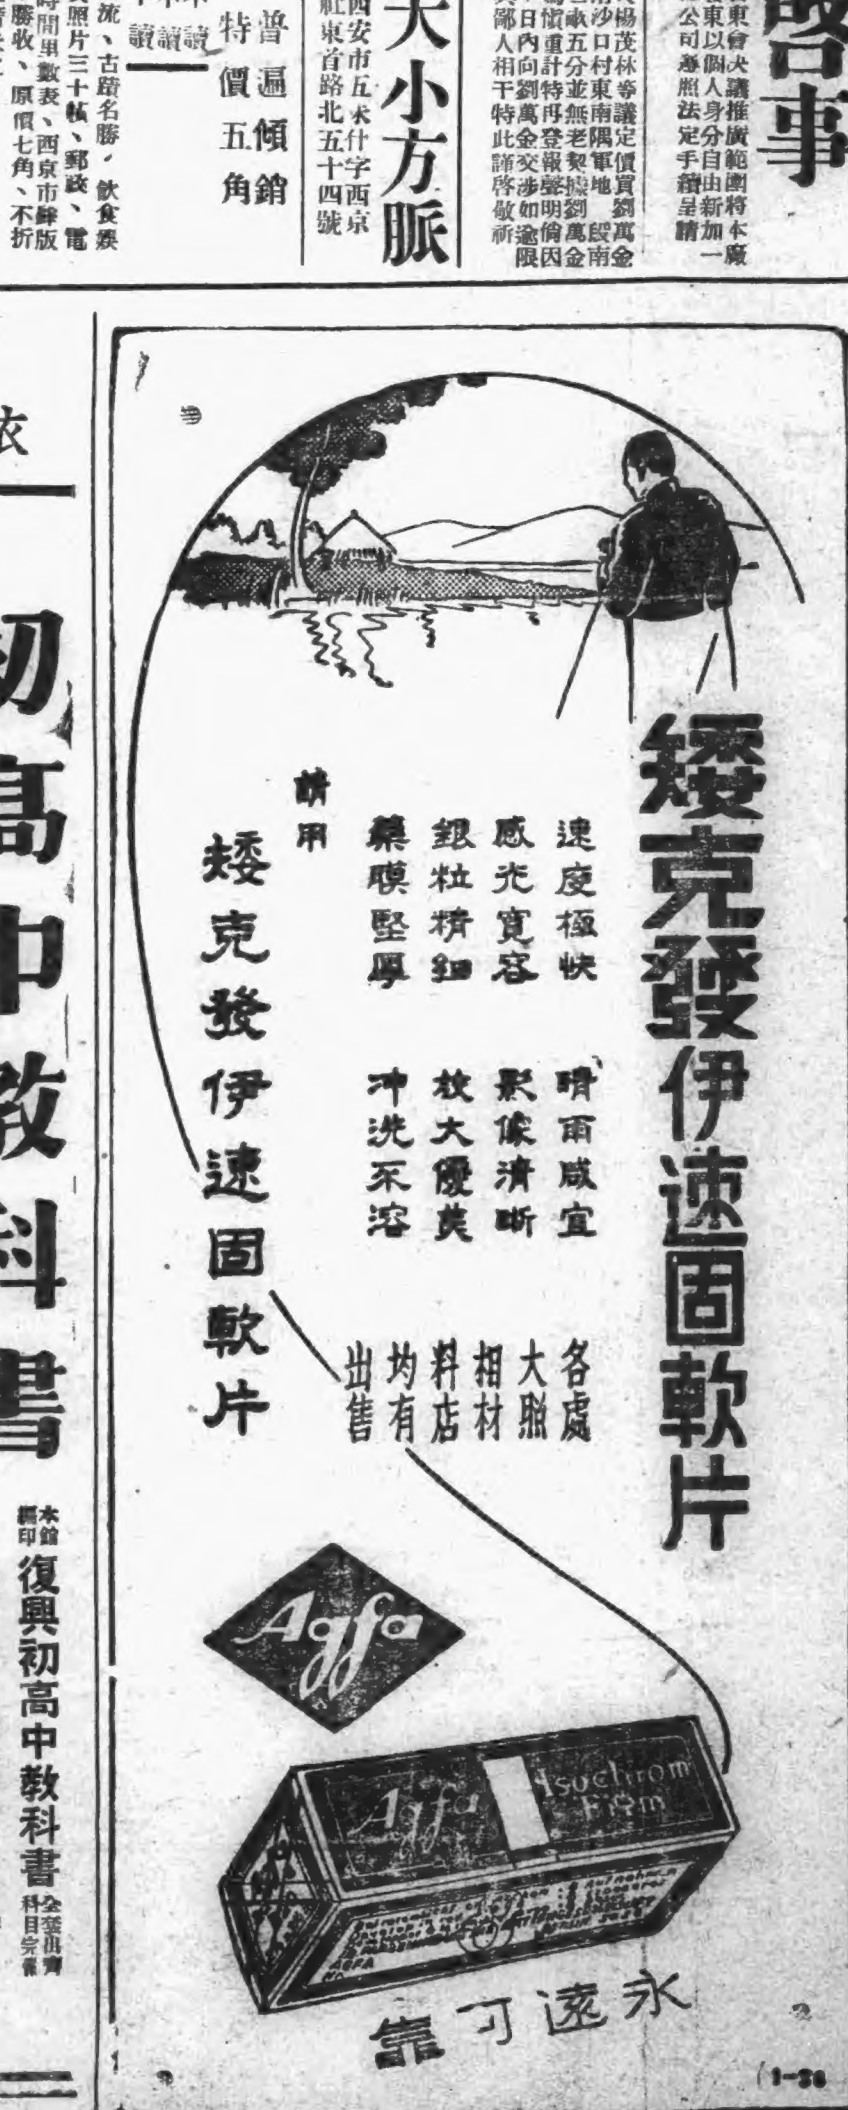 啓事
東會決議推廣範圍將本廠
東以個人身分自由新加一
公司遵照法定手續呈請
楊茂林等議定價買劉萬金
南沙口村東南隅軍地 段南
畝五分並無老契據劉萬金
慎重計特再登報聲明倘因
日內向劉萬金交涉如逾限
鄙人相干特此謹啓敬祈
大小方脈
西安市五味什字西京
社東首路北五十四號
普遍傾銷
特價五角
流、古蹟名勝、飲食娛
照片三十幀、郵政、電
時間里數表、西京市鮮版
勝收、原價七角、不折
矮克發伊速固軟片
速度極快 晴雨咸宜
感光寬容 影像清晰
銀粒精細 放大優美
藥膜堅厚 冲洗不溶
請用
矮克發伊速固軟片
各處
大照
相材
料店
均有
出售
Agfa
Agfa Isochrom
Film
永遠可靠
1-26
衣
初高中教科書
本館
編印
復興初高中教科書
全套出齊
科目完備